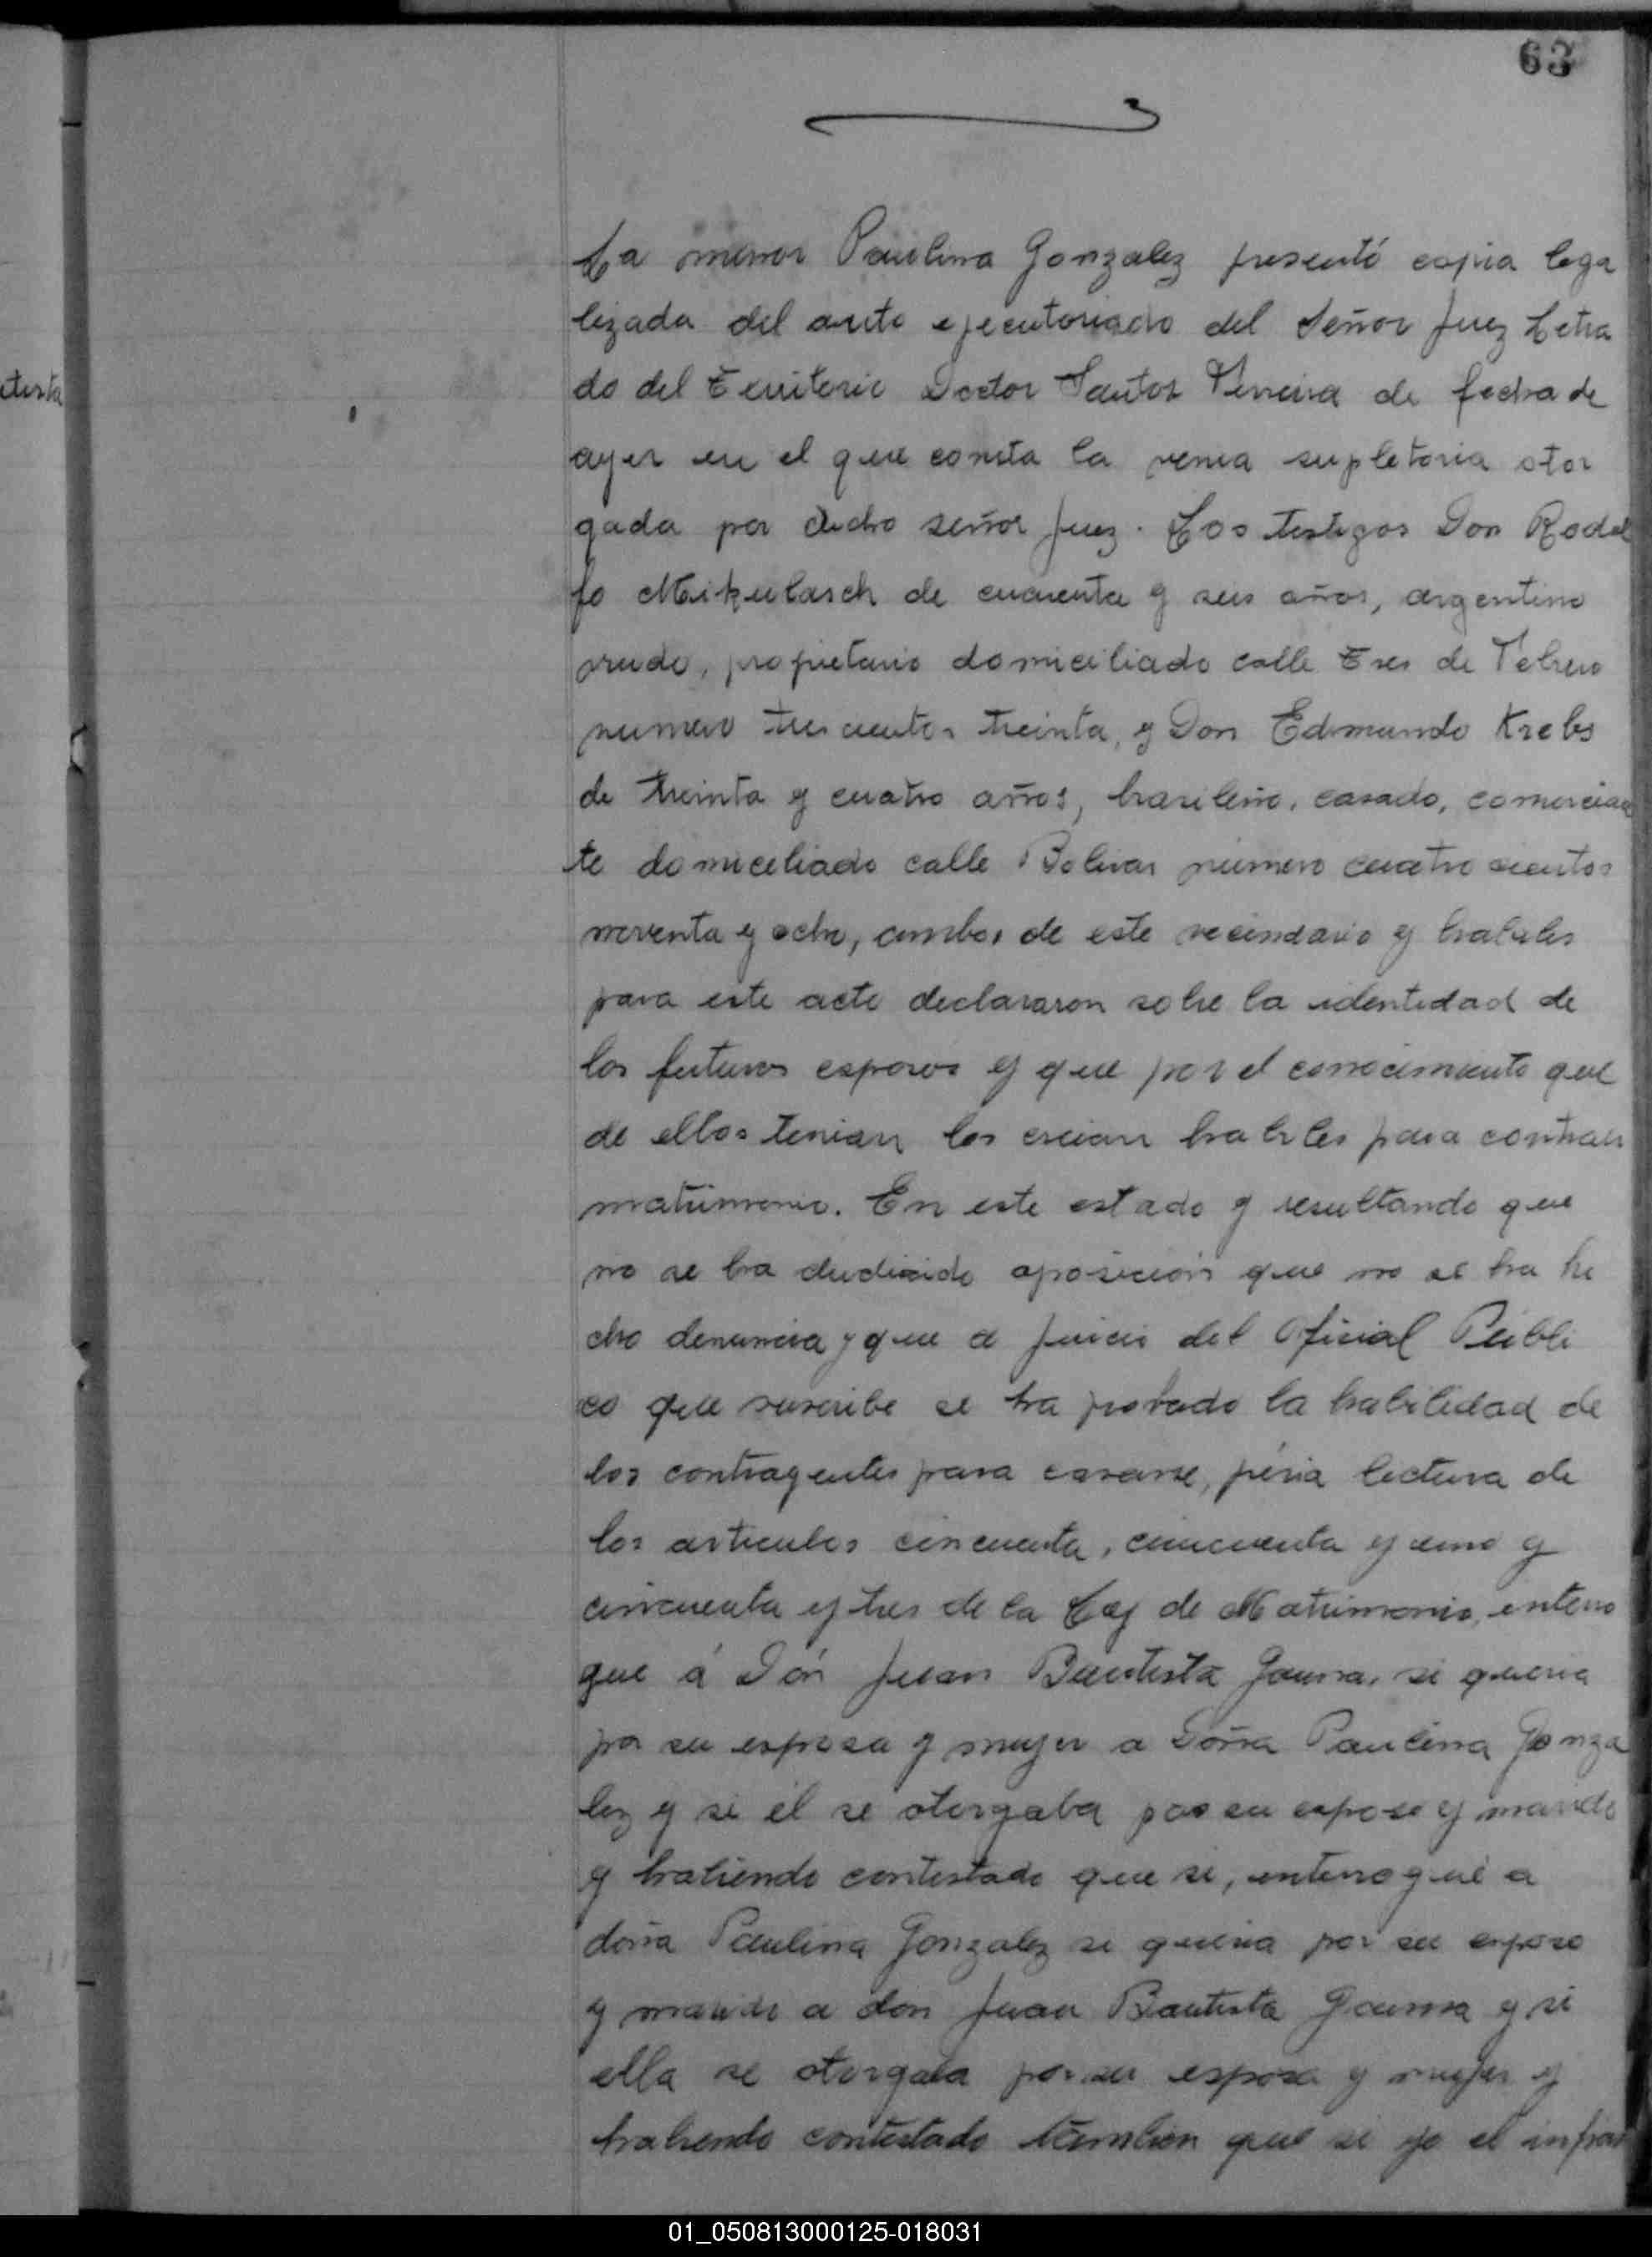 63
La menor Paulina Gonzalez presentó copia lega
lizada del auto ejecutoriado del Señor Juez Letra
do del Territorio Doctor Santos de fecha de
ayer en el que consta la venia supletoria otor
gada por dicho señor Juez. Los testigos Don Rodol
fo Mikulasch de cuarenta y seis años, argentino
viudo, propietario domiciliado calle Tres de Febrero
numero trescientos treinta, y Don Edmundo Krebs
de treinta y cuatro años, brasileño, casado, comercian
te domiciliado calle Bolivar número cuatrocientos
noventa y ocho, ambos de este vecindario y habiles
para este acto declararon sobre la identidad de
los futuros esposos y que por el conocimiento que
de ellos tenian los creian habiles para contraer
matrimonio. En este estado y resultando que
no se ha deducido oposición que no se ha he
cho denuncia y que a juicio del Oficial Públi
co que suscribe se ha probado la habilidad de
los contrayentes para casarse, pévia lectura de
los articulos cincuenta, cincuenta y uno y
cincuenta y tres de la Ley de Matrimonio, interro
gue á Dón Juan Bautista Gauna, si queria
por su esposa y mujer a Doña Paulina Gonza
lez y si él se otorgaba por su esposo y marido
y habiendo contestado que si, interrogué a
doña Paulina Gonzalez si queria por su esposo
y marido a don Juan Bautista Gauna y si
ella se otorgaba por su esposa y mujer y
habiendo contestado tambien que si yo el infras
01_050813000125-018031